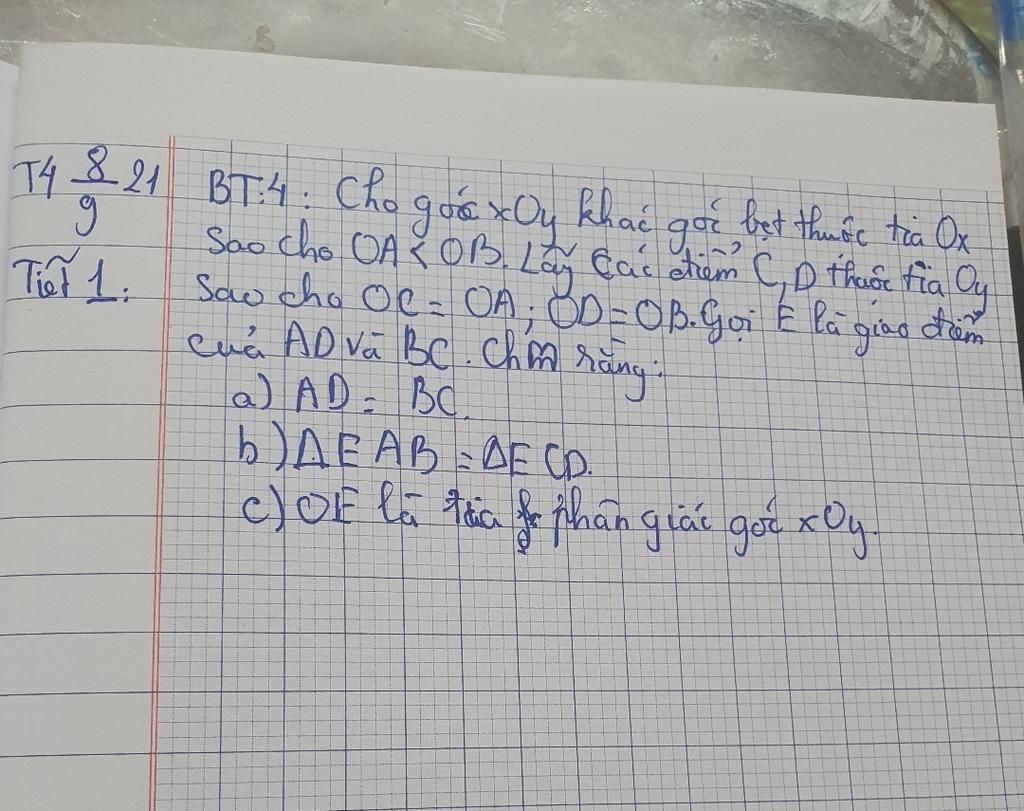 T4 8/9 21
BT:4: Cho góc xOy khác góc bẹt thuộc tia Ox
sao cho OA < OB. Lấy các điểm C, D thuộc tia Oy
Tiết 1:
sao cho OC = OA; OD = OB. Gọi E là giao điểm
của AD và BC. Chm rằng:
a) AD = BC.
b) ΔEAB = ΔECD.
c) OE là tia phân giác góc xOy.